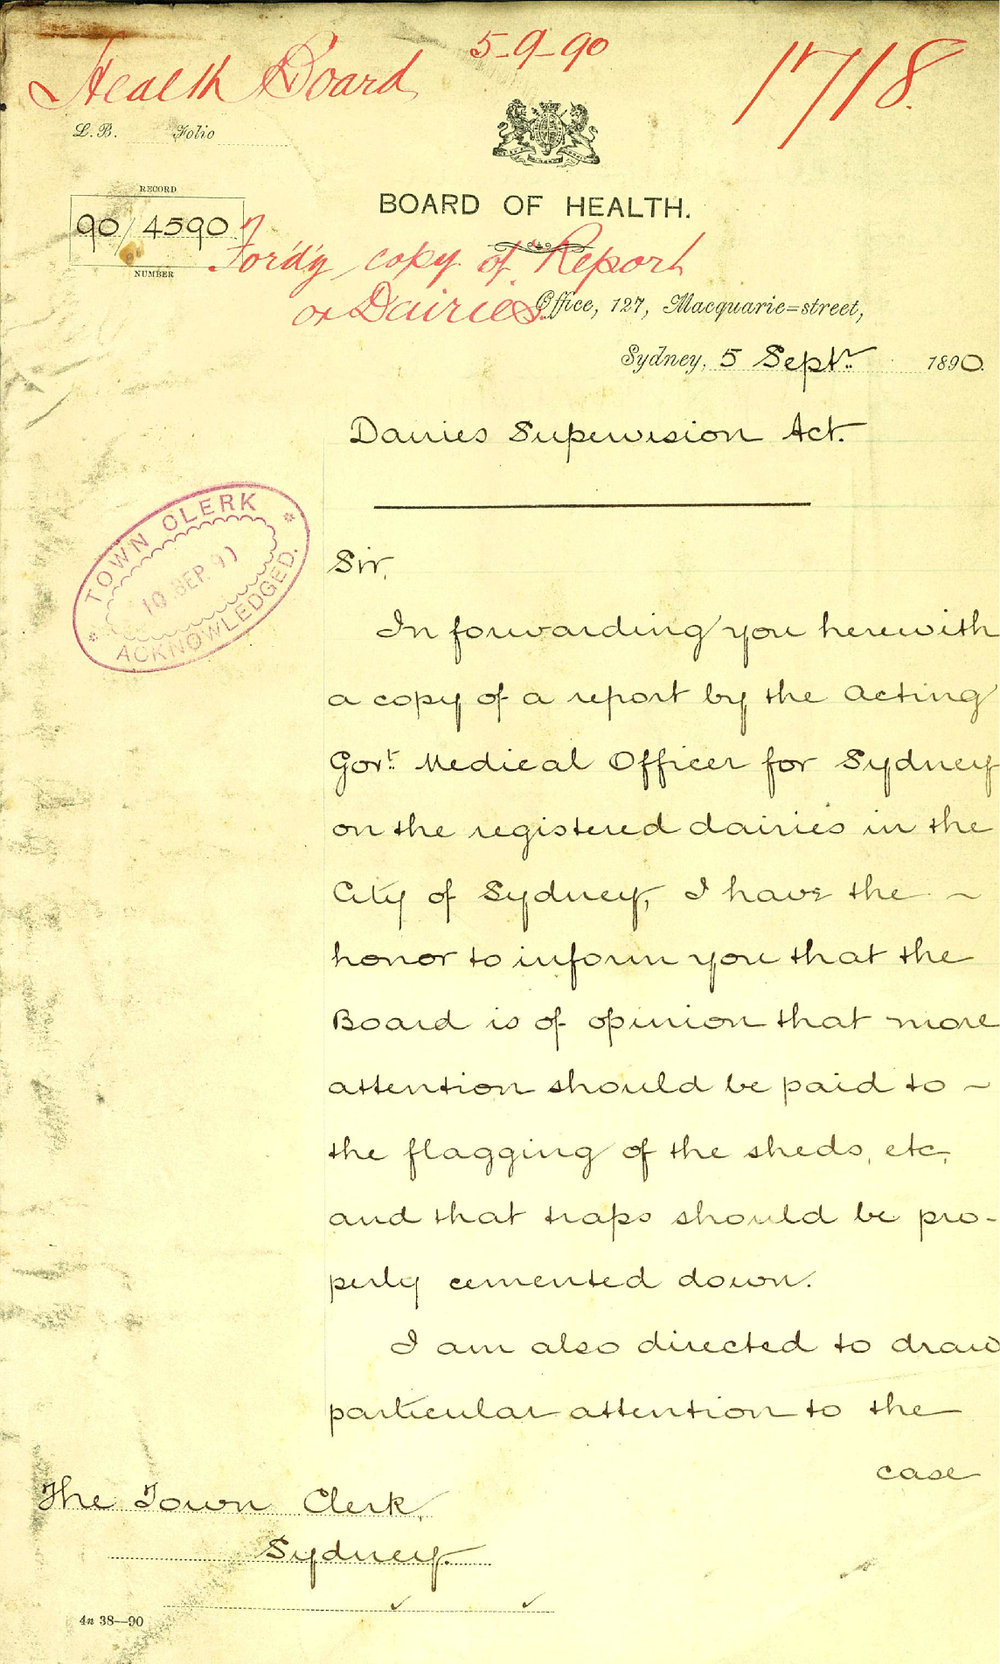 Health Board
5-9-90
1718.
L.B. Folio
RECORD
90/4590
NUMBER
BOARD OF HEALTH.
Ford'g copy of Report
on Dairies.
Office, 127, Macquarie=street,
Sydney, 5 Septr. 1890.
Dairies Supervision Act.
TOWN CLERK
10 SEP. 90
ACKNOWLEDGED.
Sir,
In forwarding you herewith
a copy of a report by the Acting
Govt. Medical Officer for Sydney
on the registered dairies in the
City of Sydney, I have the ~
honor to inform you that the
Board is of opinion that more
attention should be paid to ~
the flagging of the sheds, etc,
and that traps should be pro-
perly cemented down.
I am also directed to draw
particular attention to the
case
The Town Clerk,
Sydney.
4a 38—90